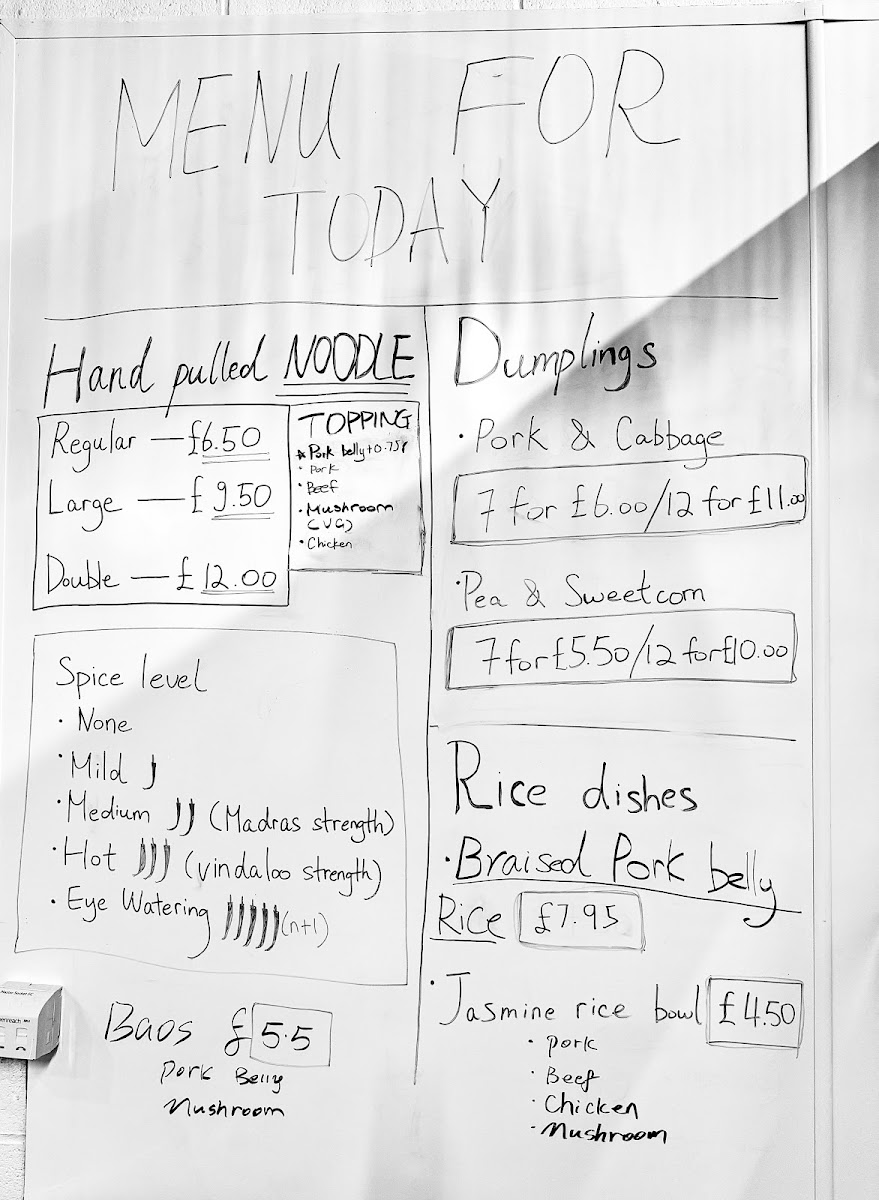 MENU FOR
TODAY
Hand pulled NOODLE
Regular — £6.50
Large — £9.50
Double — £12.00
TOPPING
Pork belly +0.75p
Pork
Beef
Mushroom
(VG)
Chicken
Spice level
· None
· Mild
· Medium (Madras strength)
· Hot (vindaloo strength)
· Eye Watering (n+1)
Baos £5.5
Pork Belly
Mushroom
Dumplings
· Pork & Cabbage
7 for £6.00/12 for £11.00
· Pea & Sweetcorn
7 for £5.50/12 for £10.00
Rice dishes
· Braised Pork belly
Rice £7.95
· Jasmine rice bowl £4.50
· Pork
· Beef
· Chicken
· Mushroom